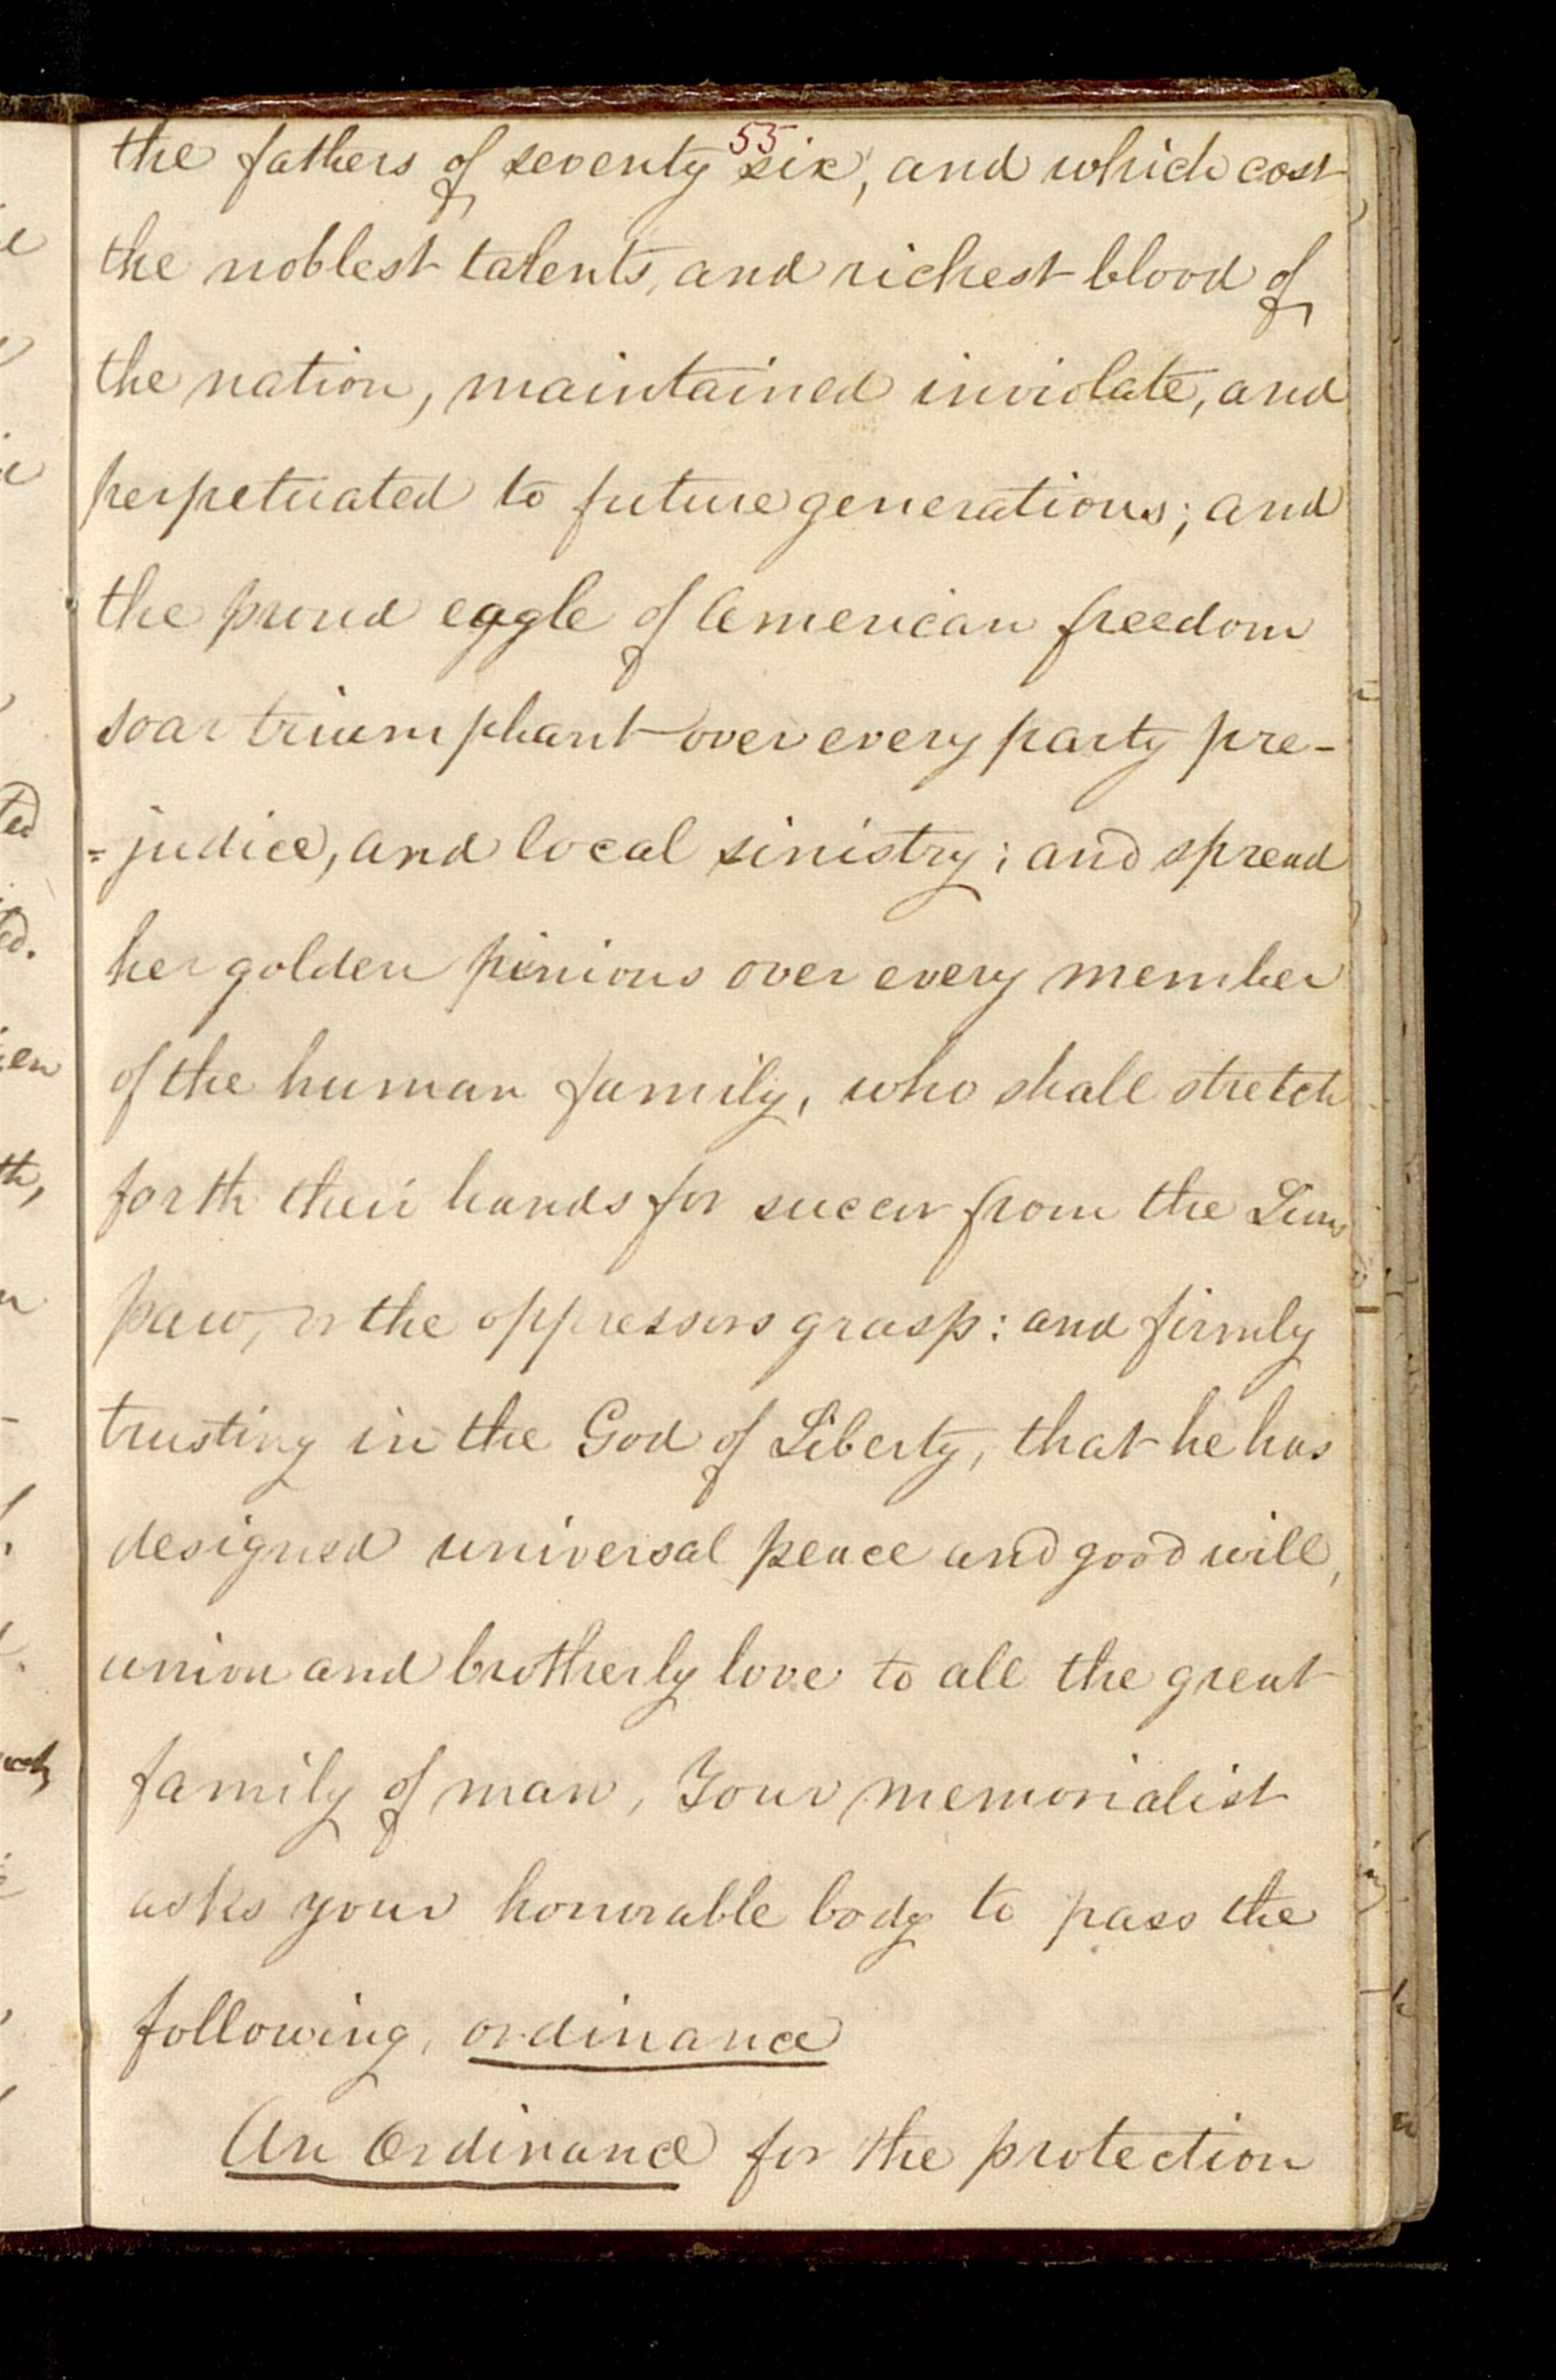 55
the fathers of seventy six, and which cost
the noblest talents, and richest blood of
the nation, maintained inviolate, and
perpetuated to future generations; and
the proud eagle of American freedom
soar triumphant over every party pre-
=judice, and local sinistry; and spread
her golden pinions over every member
of the human family, who shall stretch
forth their hands for succor from the Lions
paw, or the oppressors grasp: and firmly
trusting in the God of Liberty, that he has
designed universal peace and good will,
union and brotherly love to all the great
family of man, Your memorialist
asks your honorable body to pass the
following, ordinance
An Ordinance for the protection